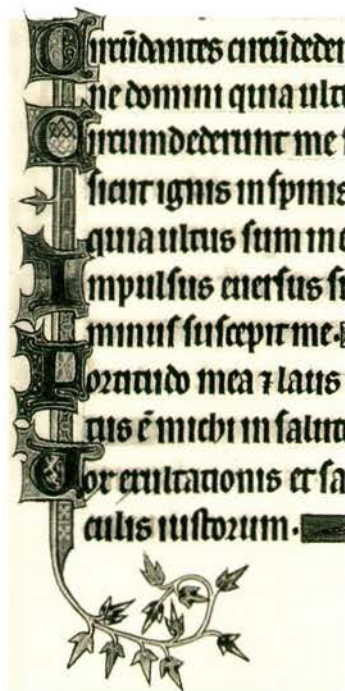 Circūdantes circūdeder
ne domini quia ultu
Circumdederunt me s
sicut ignis in spinis
quia ultus sum in e
Impulsus euersus su
minus suscepit me.
Fortitudo mea ⁊ laus
ctus ē michi in salute
Uox exultationis et sa
culis iustorum.